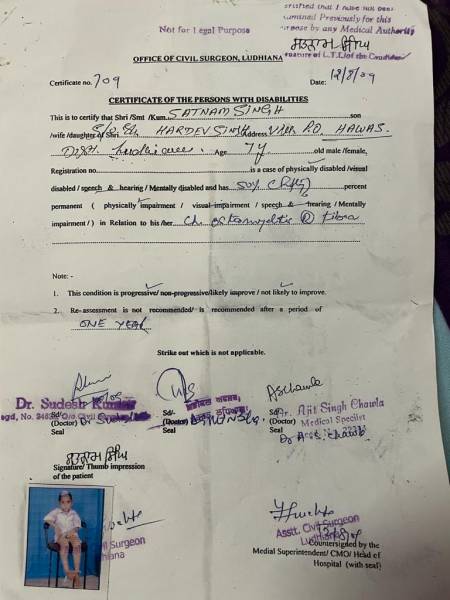 Not for Legal Purpose
certified that I have not been
examined Previously for this
purpose by any Medical Authority
ਸਤਨਾਮ ਸਿੰਘ
signature of L.T.I./of the Candidate
OFFICE OF CIVIL SURGEON, LUDHIANA
Certificate no. 709
Date: 12/8/09
CERTIFICATE OF THE PERSONS WITH DISABILITIES
This is to certify that Shri /Smt /Kum. SATNAM SINGH son
/wife /daughter of Shri HARDEV SINGH Address VPO HAWAS.
Distt. Ludhiana Age 7y old male /female,
Registration no is a case of physically disabled /visual
disabled / speech & hearing / Mentally disabled and has 50% (fifty) percent
permanent ( physically impairment / visual impairment / speech & hearing / Mentally
impairment / ) in Relation to his /her Ch. osteomyelitis (R) Tibia
Note: -
1. This condition is progressive/ non-progressive/likely improve / not likely to improve.
2. Re-assessment is not recommended/ is recommended after a period of
ONE YEAR
Strike out which is not applicable.
Dr. Sudesh Kumar
Sd/-
(Doctor)
Seal
Sd/-
(Doctor)
Seal
AS Chawla
Sd/-
Dr. Ajit Singh Chawla
(Doctor) Medical Specilist
Seal
ਸਤਨਾਮ ਸਿੰਘ
Signature/ Thumb impression
of the patient
Civil Surgeon
Ludhiana
Asstt. Civil Surgeon
Ludhiana
12/8/09
Countersigned by the
Medial Superintendent/ CMO/ Head of
Hospital (with seal)